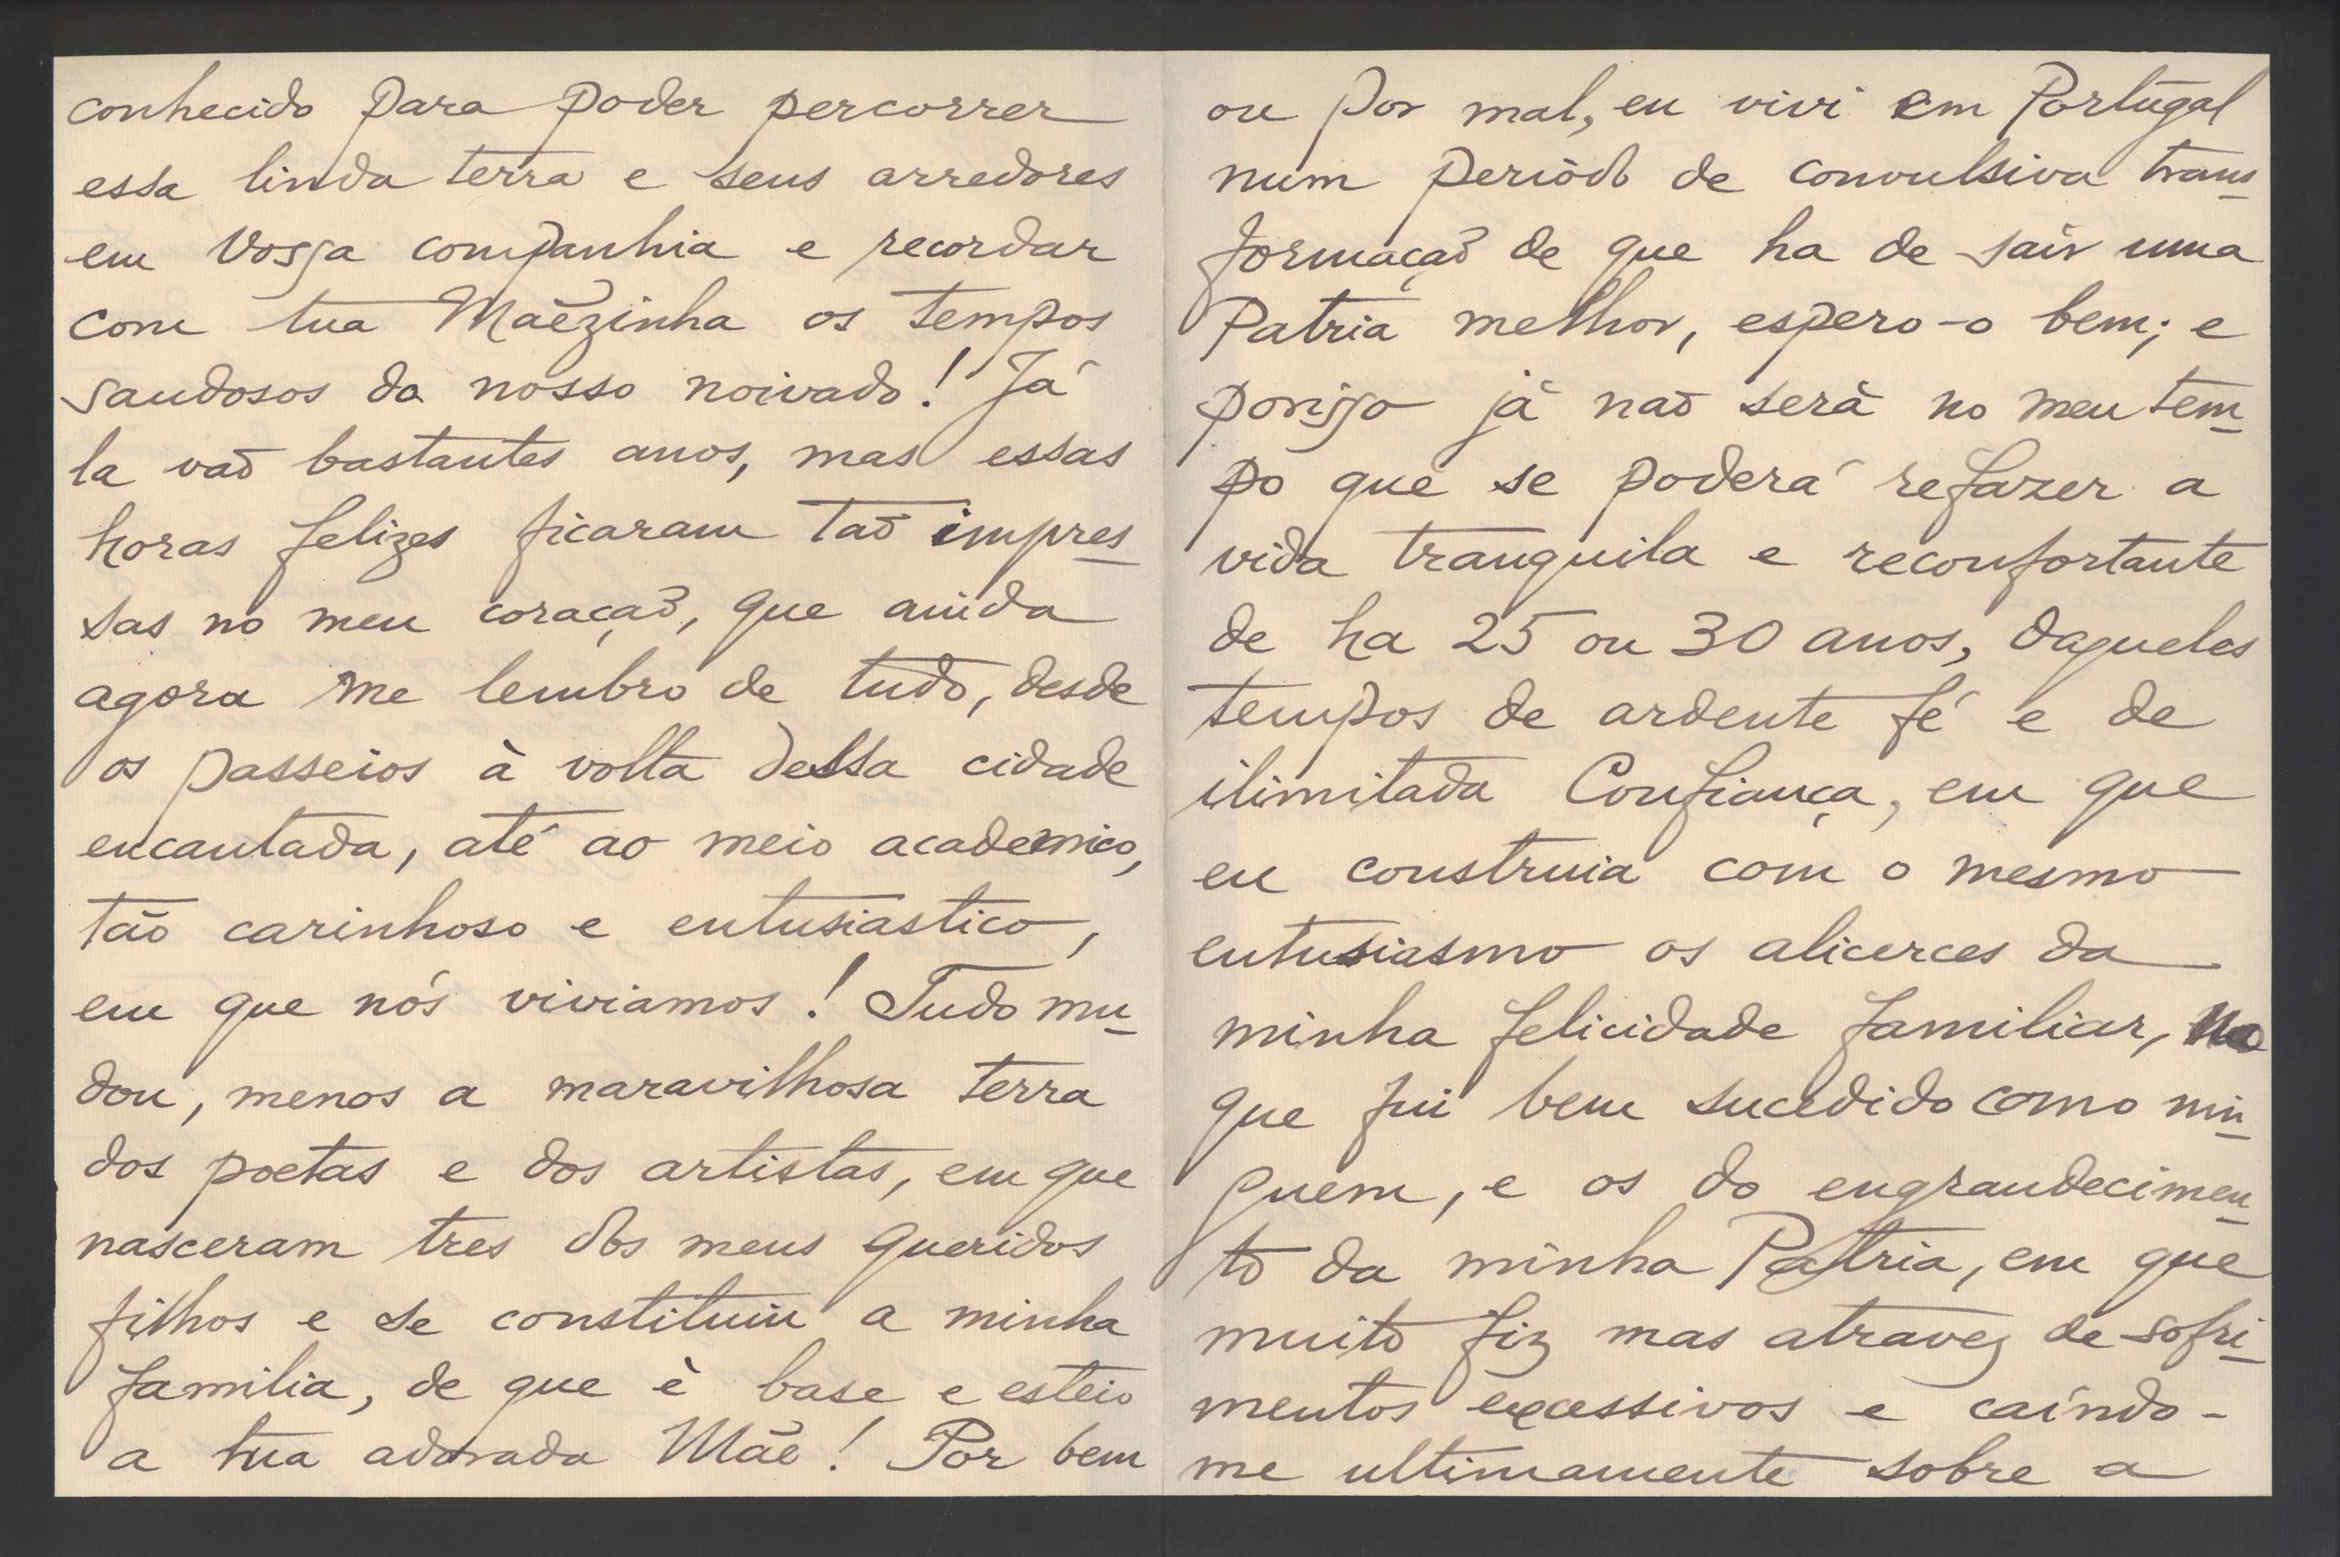 conhecido para poder percorrer
essa linda terra e seus arredores
em vossa companhia e recordar
com tua Mãezinha os tempos
saudosos do nosso noivado! Já
la vaõ bastantes anos, mas essas
horas felizes ficaram taõ impres-
sas no meu coraçaõ, que ainda
agora me lembro de tudo, desde
os passeios à volta dessa cidade
encantada, até ao meio academico,
tão carinhoso e entusiastico,
em que nós viviamos! Tudo mu-
dou, menos a maravilhosa terra
dos poetas e dos artistas, em que
nasceram tres dos meus queridos
filhos e se constituiu a minha
familia, de que è base e esteio
a tua adorada Mãe! Por bem
ou por mal, eu vivi em Portugal
num periòdo de convulsiva trans-
formaçaõ de que ha de sair uma
Patria melhor, espero-o bem; e
porisso jà naõ serà no meu tem-
po que se poderá refazer a
vida tranquila e reconfortante
de ha 25 ou 30 anos, daqueles
tempos de ardente fé e de
ilimitada Confiança, em que
eu construia com o mesmo
entusiasmo os alicerces da
minha felicidade familiar, no
que fui bem sucedido como nin-
guem, e os do engrandecimen-
to da minha Patria, em que
muito fiz mas atravez de sofri-
mentos excessivos e caíndo-
me ultimamente sobre a